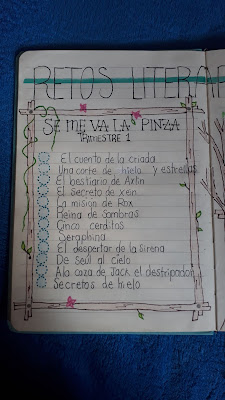 RETOS LITERAR
SE ME VA LA PINZA
TRIMESTRE 1
El cuento de la criada
Una corte de hielo y estrellas
El bestiario de Axlin
El Secreto de Xein
La misión de Rox
Reina de Sombras
Cinco cerditos
Seraphina
El despertar de la sirena
De Seúl al cielo
A la caza de Jack el destripador
Secretos de hielo